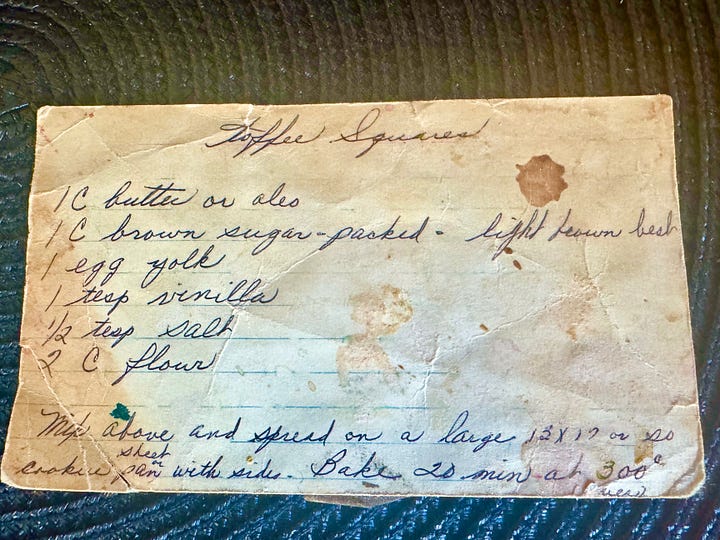 Toffee Squares
1 C butter or oleo
1 C brown sugar - packed - light brown best
1 egg yolk
1 tesp vinilla
1/2 tesp salt
2 C flour
Mix above and spread on a large 13 x 17 or so
cookie sheet or pan with sides. Bake 20 min at 300°
(over)